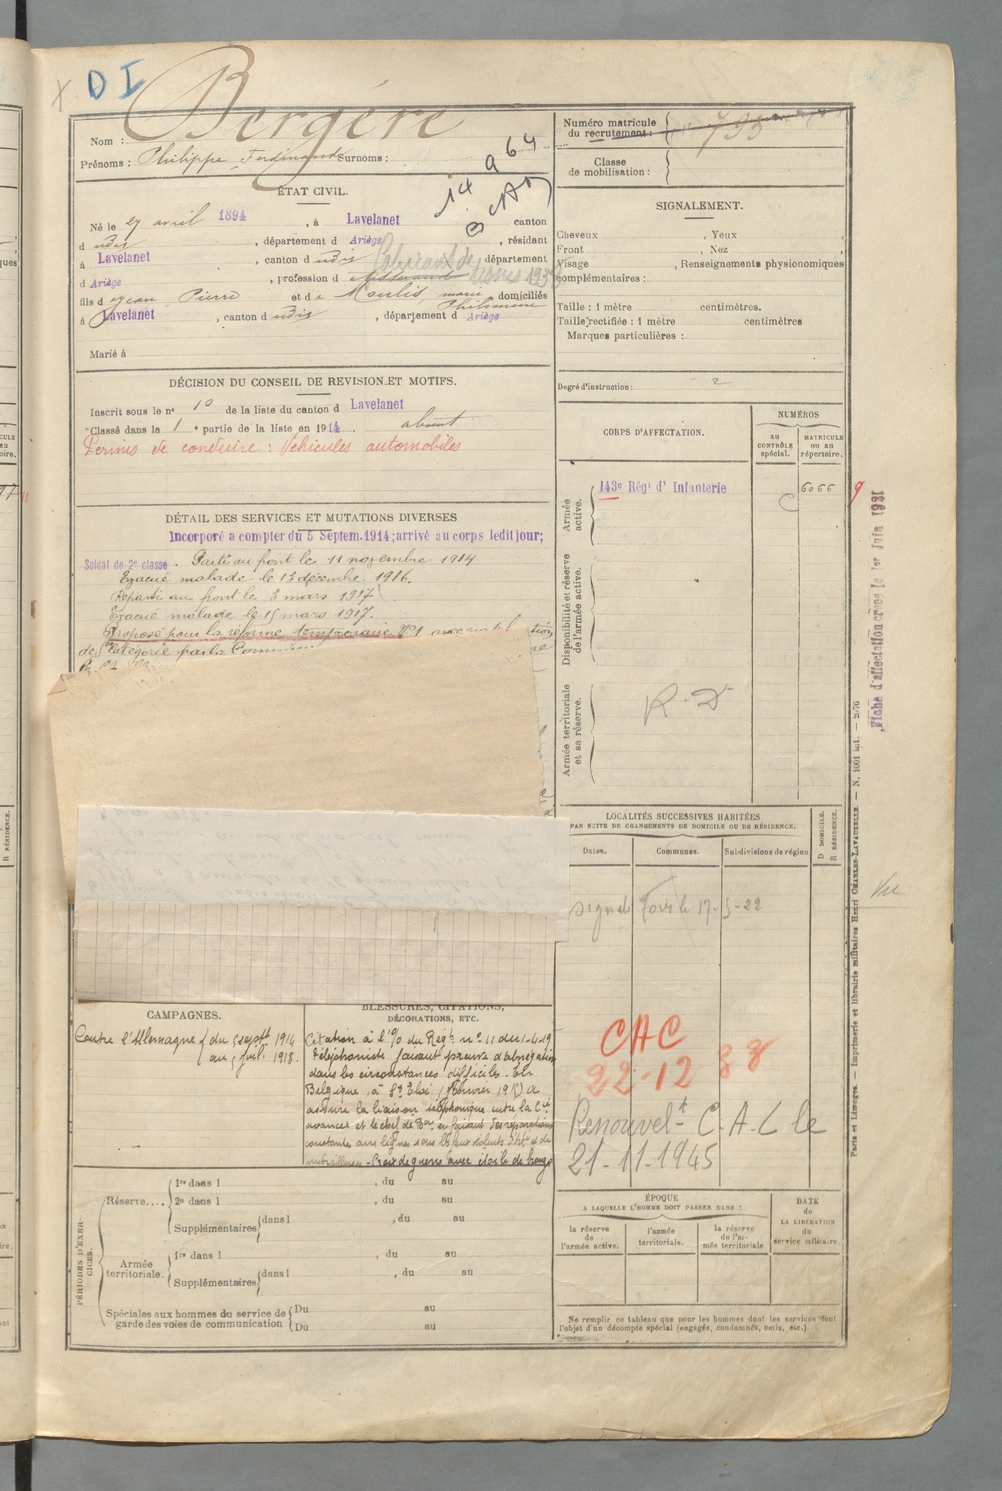 X D I
Bergère
Nom :
Prénoms : Philippe Ferdinand Surnoms :
14 a 64
ÉTAT CIVIL.
Né le 27 avril 1894, à Lavelanet canton
d udit, département d Ariège, résidant
à Lavelanet, canton d udit département
d Ariège, profession d 1938
fils d e Jean Pierre et d e Moulis, marie Philomène domiciliés
à Lavelanet, canton d udit, département d Ariège
Marié à
DÉCISION DU CONSEIL DE REVISION ET MOTIFS.
Inscrit sous le n° 10 de la liste du canton d Lavelanet
Classé dans la 1 e partie de la liste en 1914. absent
Permis de conduire : Véhicules automobiles
DÉTAIL DES SERVICES ET MUTATIONS DIVERSES
Incorporé à compter du 5 Septem. 1914; arrivé au corps ledit jour;
Soldat de 2e classe. Parti au front le 11 novembre 1914
Evacué malade le 13 décembre 1916.
Reparti au front le 3 mars 1917
Evacué malade le 15 mars 1917.
Proposé pour la réforme temporaire N°1
de catégorie par la Comm
CAMPAGNES.
Contre l'Allemagne { du 5 septt 1914
au 5 juil. 1918.
BLESSURES, CITATIONS,
DÉCORATIONS, ETC.
Citation à l'O/ du Régt n° 11 du 1-4-19
Téléphoniste faisant preuve d'abnégation
dans les circonstances difficiles. En
Belgique, à St Eloi (février 1915) a
assuré la liaison téléphonique entre la Cie
avancée et le chef de Bon en faisant des réparations
constantes aux lignes sous les plus violents et de
mitrailleuses. Croix de guerre avec étoile de bronze
PÉRIODES D'EXERCICES.
Réserve.... 1re dans l , du au
2e dans l , du au
Supplémentaires { dans l , du au
Armée territoriale. 1re dans l , du au
Supplémentaires { dans l , du au
Spéciales aux hommes du service de garde des voies de communication { Du au
Du au
Numéro matricule du recrutement : 795
Classe de mobilisation :
SIGNALEMENT.
Cheveux , Yeux ,
Front , Nez
Visage , Renseignements physionomiques
complémentaires :
Taille : 1 mètre centimètres.
Taille rectifiée : 1 mètre centimètres
Marques particulières :
Degré d'instruction : 2
CORPS D'AFFECTATION.
NUMÉROS
AU CONTRÔLE spécial.
MATRICULE OU AU répertoire.
Armée active.
143e Régt d' Infanterie 6066
Disponibilité et réserve de l'armée active.
Armée territoriale et sa réserve.
R. D
LOCALITÉS SUCCESSIVES HABITÉES
PAR SUITE DE CHANGEMENTS DE DOMICILE OU DE RÉSIDENCE.
Dates. Communes. Subdivisions de région
D DOMICILE.
R RÉSIDENCE.
le 17-5-22
CAC
22-12 38
Renouvelt C.A.C le
21-11-1945
ÉPOQUE
A LAQUELLE L'HOMME DOIT PASSER DANS :
la réserve de l'armée active.
l'armée territoriale.
la réserve de l'armée territoriale
DATE de LA LIBÉRATION du service militaire.
Ne remplir ce tableau que pour les hommes dont les services font
l'objet d'un décompte spécial (engagés, condamnés, omis, etc.).
Fiche d'affectation créée le 1er Juin 1931
Vu
Paris et Limoges. — Imprimerie et librairie militaires Henri CHARLES-LAVAUZELLE.